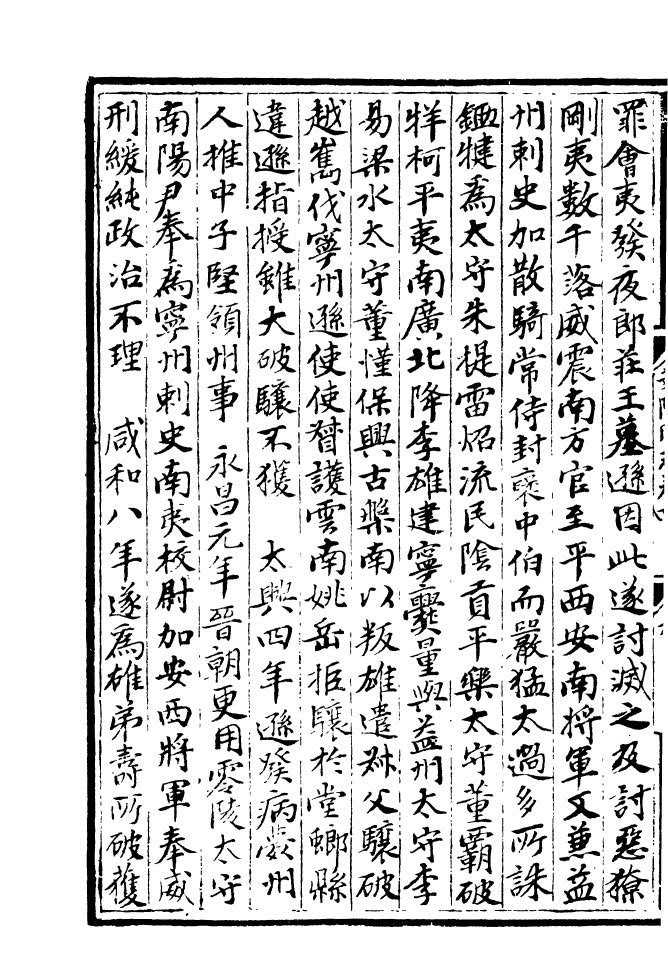 罪會夷發夜郎莊王墓遜因此遂討滅之及討惡獠
剛夷數千落威震南方官至平西安南将軍又兼益
州刺史加散騎常侍封襃中伯而嚴猛太過多所誅
鋤犍爲太守朱提雷炤流民陰貢平樂太守董霸破
牂柯平夷南廣北降李雄建寧爨量與益州太守李
易梁水太守董慬保興古槃南以叛雄遣叔父驤破
越嶲伐寧州遜使使督護雲南姚岳拒驤於堂螂縣
違遜指授雖大破驤不獲　太興四年遜發病薨州
人推中子堅領州事　永昌元年晉朝更用零陵太守
南陽尹奉爲寧州刺史南夷校尉加安西將軍奉威
刑緩純政治不理　咸和八年遂爲雄弟壽所破獲